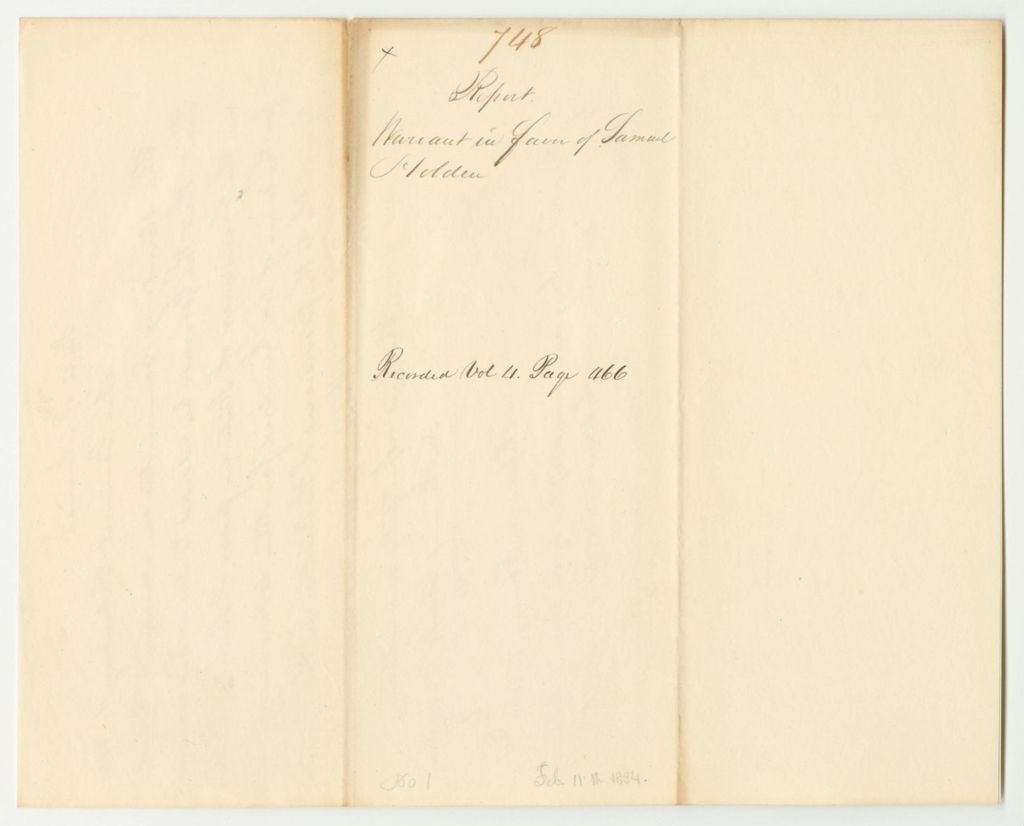 748
x
Report.
Warrant in favor of Samuel
Holden
Recorded Vol 4. Page 466
No 1
Feb. 11th 1834.